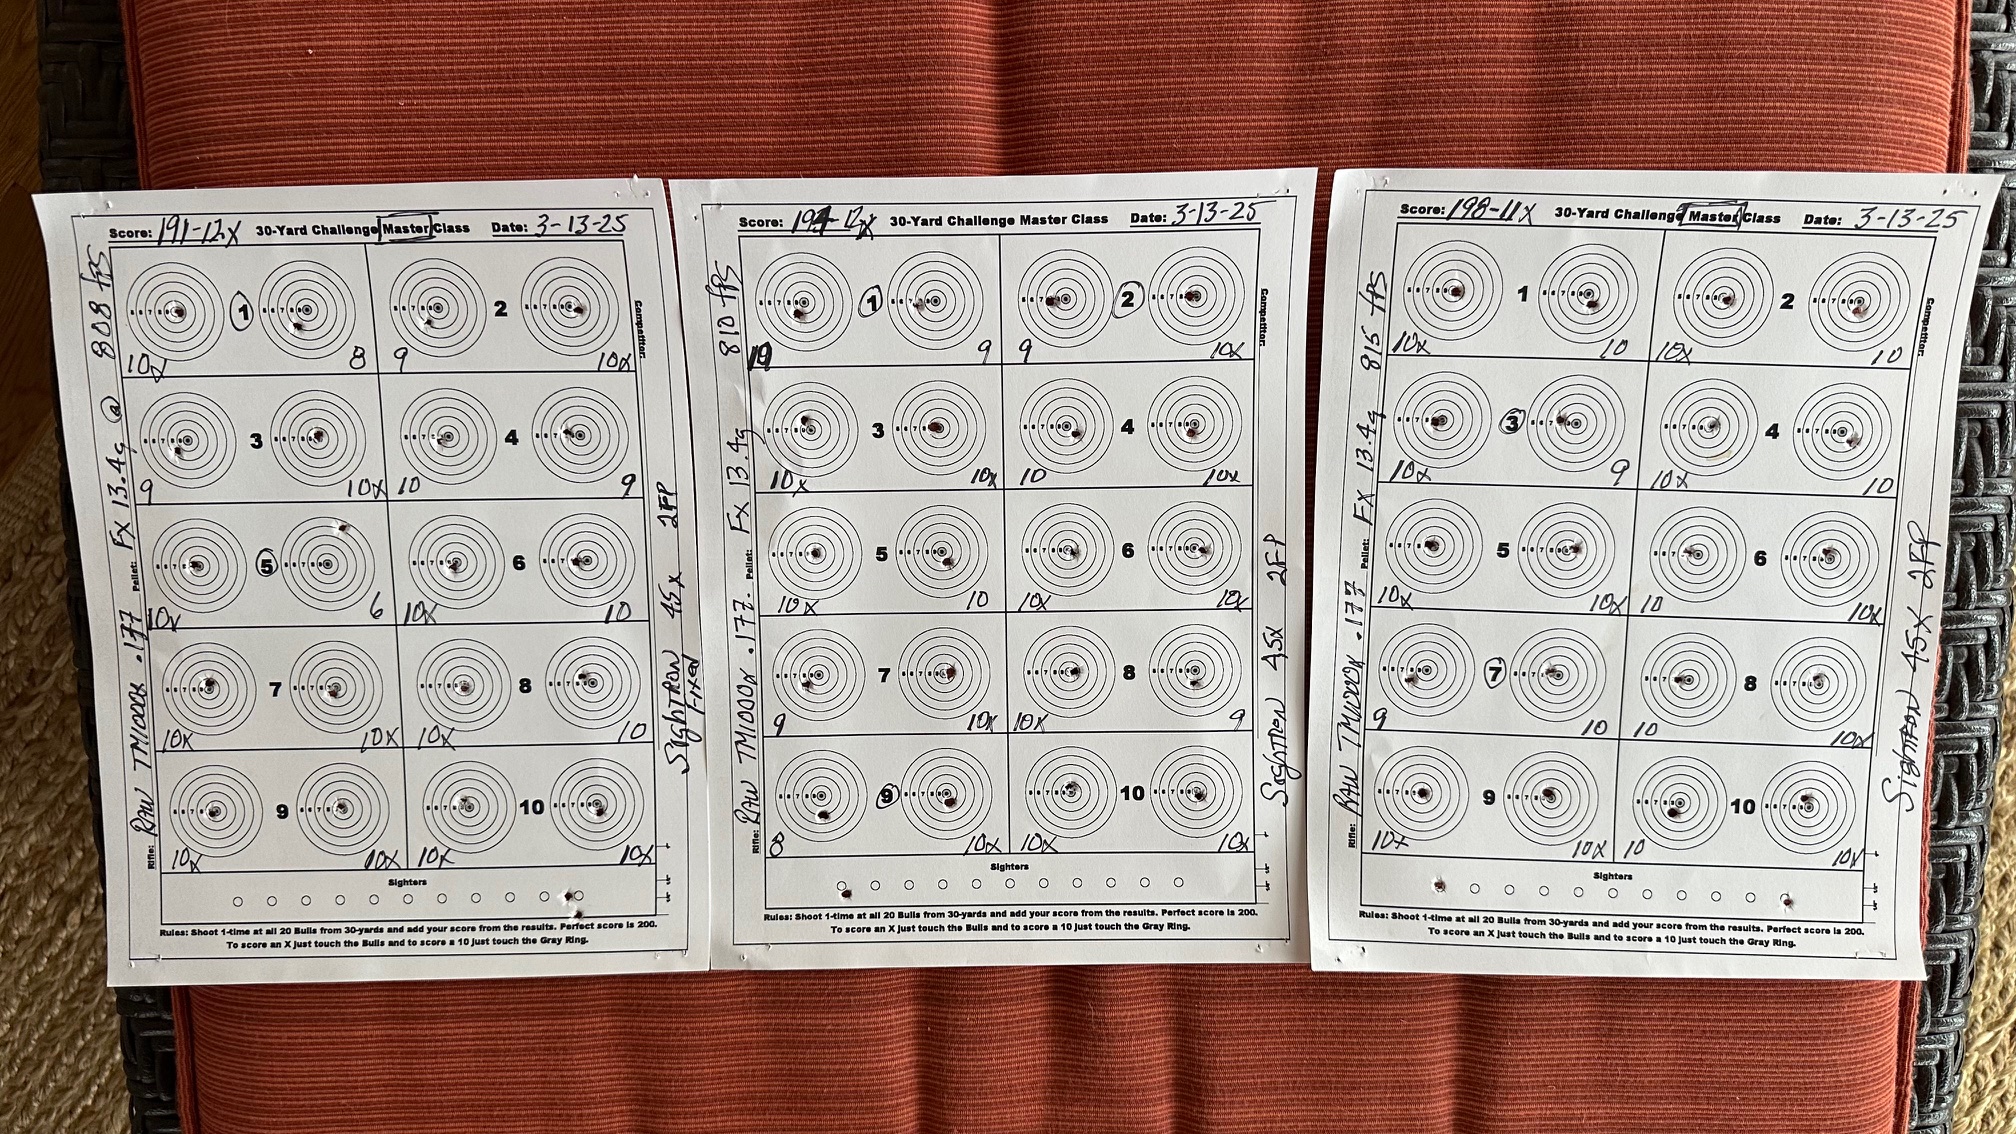 Score: 191-12x 30-Yard Challenge Master Class Date: 3-13-25
1
2
10x 8 9 10x
3
4
9 10x 10 9
5
6
10x 6 10x 10
7
8
10x 10x 10x 10
9
10
10x 10x 10x 10x
Sighters
Rules: Shoot 1-time at all 20 Bulls from 30-yards and add your score from the results. Perfect score is 200.
To score an X just touch the Bulls and to score a 10 just touch the Gray Ring.
Rifle: RAW TM1000x .177 Pellet: FX 13.4g @ 808 fps
Competitor:
Sightron 45x 2FP
Fixed
Score: 194-12x 30-Yard Challenge Master Class Date: 3-13-25
1
2
10 9 9 10x
3
4
10x 10x 10 10x
5
6
10x 10 10x 10x
7
8
9 10x 10x 9
9
10
8 10x 10x 10x
Sighters
Rules: Shoot 1-time at all 20 Bulls from 30-yards and add your score from the results. Perfect score is 200.
To score an X just touch the Bulls and to score a 10 just touch the Gray Ring.
Rifle: RAW TM1000x .177. Pellet: FX 13.4g 810 fps
Competitor:
Sightron 45x 2FP
Score: 198-11x 30-Yard Challenge Master Class Date: 3-13-25
1
2
10x 10 10x 10
3
4
10x 9 10x 10
5
6
10x 10x 10 10x
7
8
9 10 10 10x
9
10
10x 10x 10 10x
Sighters
Rules: Shoot 1-time at all 20 Bulls from 30-yards and add your score from the results. Perfect score is 200.
To score an X just touch the Bulls and to score a 10 just touch the Gray Ring.
Rifle: RAW TM1000x .177 Pellet: FX 13.4g 815 fps
Competitor:
Sightron 45x 2FP